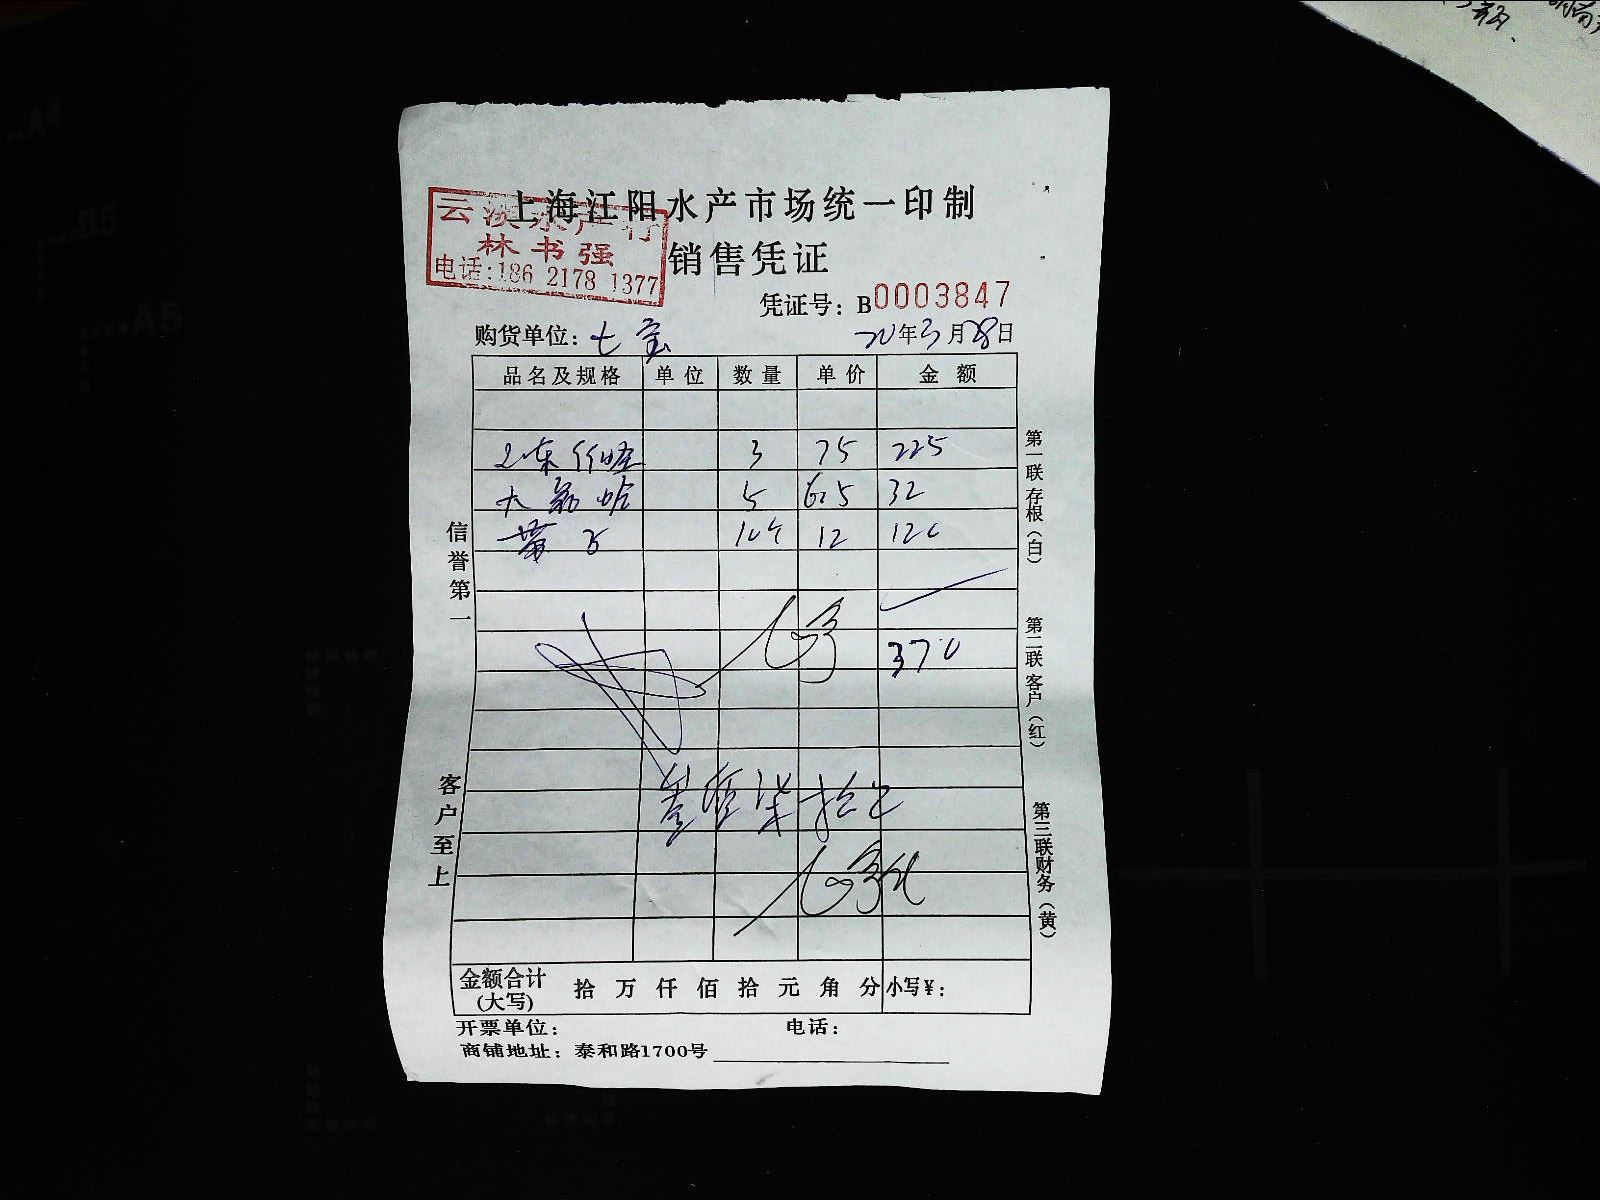 上海江阳水产市场统一印制
云澳水产行
林书强
电话:186 2178 1377
销售凭证
凭证号: B0003847
购货单位: 七宝 20年3月28日
品名及规格 单位 数量 单价 金额
3 75 225
大 5 6.5 32
带子 10个 12 120
370
叁佰柒拾元
金额合计(大写) 拾 万 仟 佰 拾 元 角 分 小写¥:
开票单位: 电话:
商铺地址: 泰和路1700号
信誉第一
客户至上
第一联存根(白)
第二联客户(红)
第三联财务(黄)
A4
B5
A5